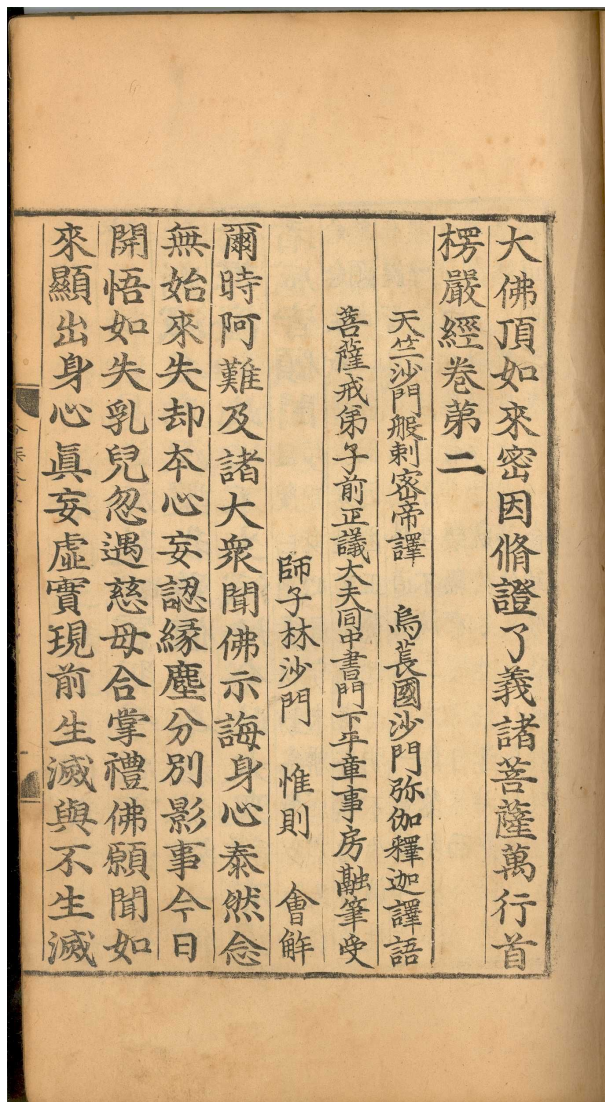 大佛頂如來密因脩證了義諸菩薩萬行首
楞嚴經卷第二
天竺沙門般剌密帝譯 烏萇國沙門弥伽釋迦譯語
菩薩戒弟子前正議大夫同中書門下平章事房融筆受
師子林沙門 惟則 會觧
爾時阿難及諸大衆聞佛示誨身心泰然念
無始來失却夲心妄認緣塵分別影事今日
開悟如失乳兒忽遇慈母合掌禮佛願聞如
來顯出身心眞妄虛實現前生滅與不生滅